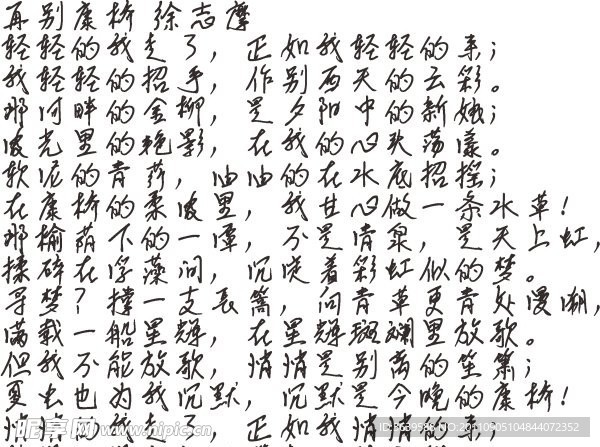 再别康桥 徐志摩
轻轻的我走了, 正如我轻轻的来;
我轻轻的招手, 作别西天的云彩。
那河畔的金柳, 是夕阳中的新娘;
波光里的艳影, 在我的心头荡漾。
软泥的青荇, 油油的在水底招摇;
在康桥的柔波里, 我甘心做一条水草!
那榆荫下的一潭, 不是清泉, 是天上虹,
揉碎在浮藻间, 沉淀着彩虹似的梦。
寻梦? 撑一支长篙, 向青草更青处漫溯,
满载一船星辉, 在星辉斑斓里放歌。
但我不能放歌, 悄悄是别离的笙箫;
夏虫也为我沉默, 沉默是今晚的康桥!
悄悄的我走了, 正如我悄悄的来;
昵图网 www.nipic.com